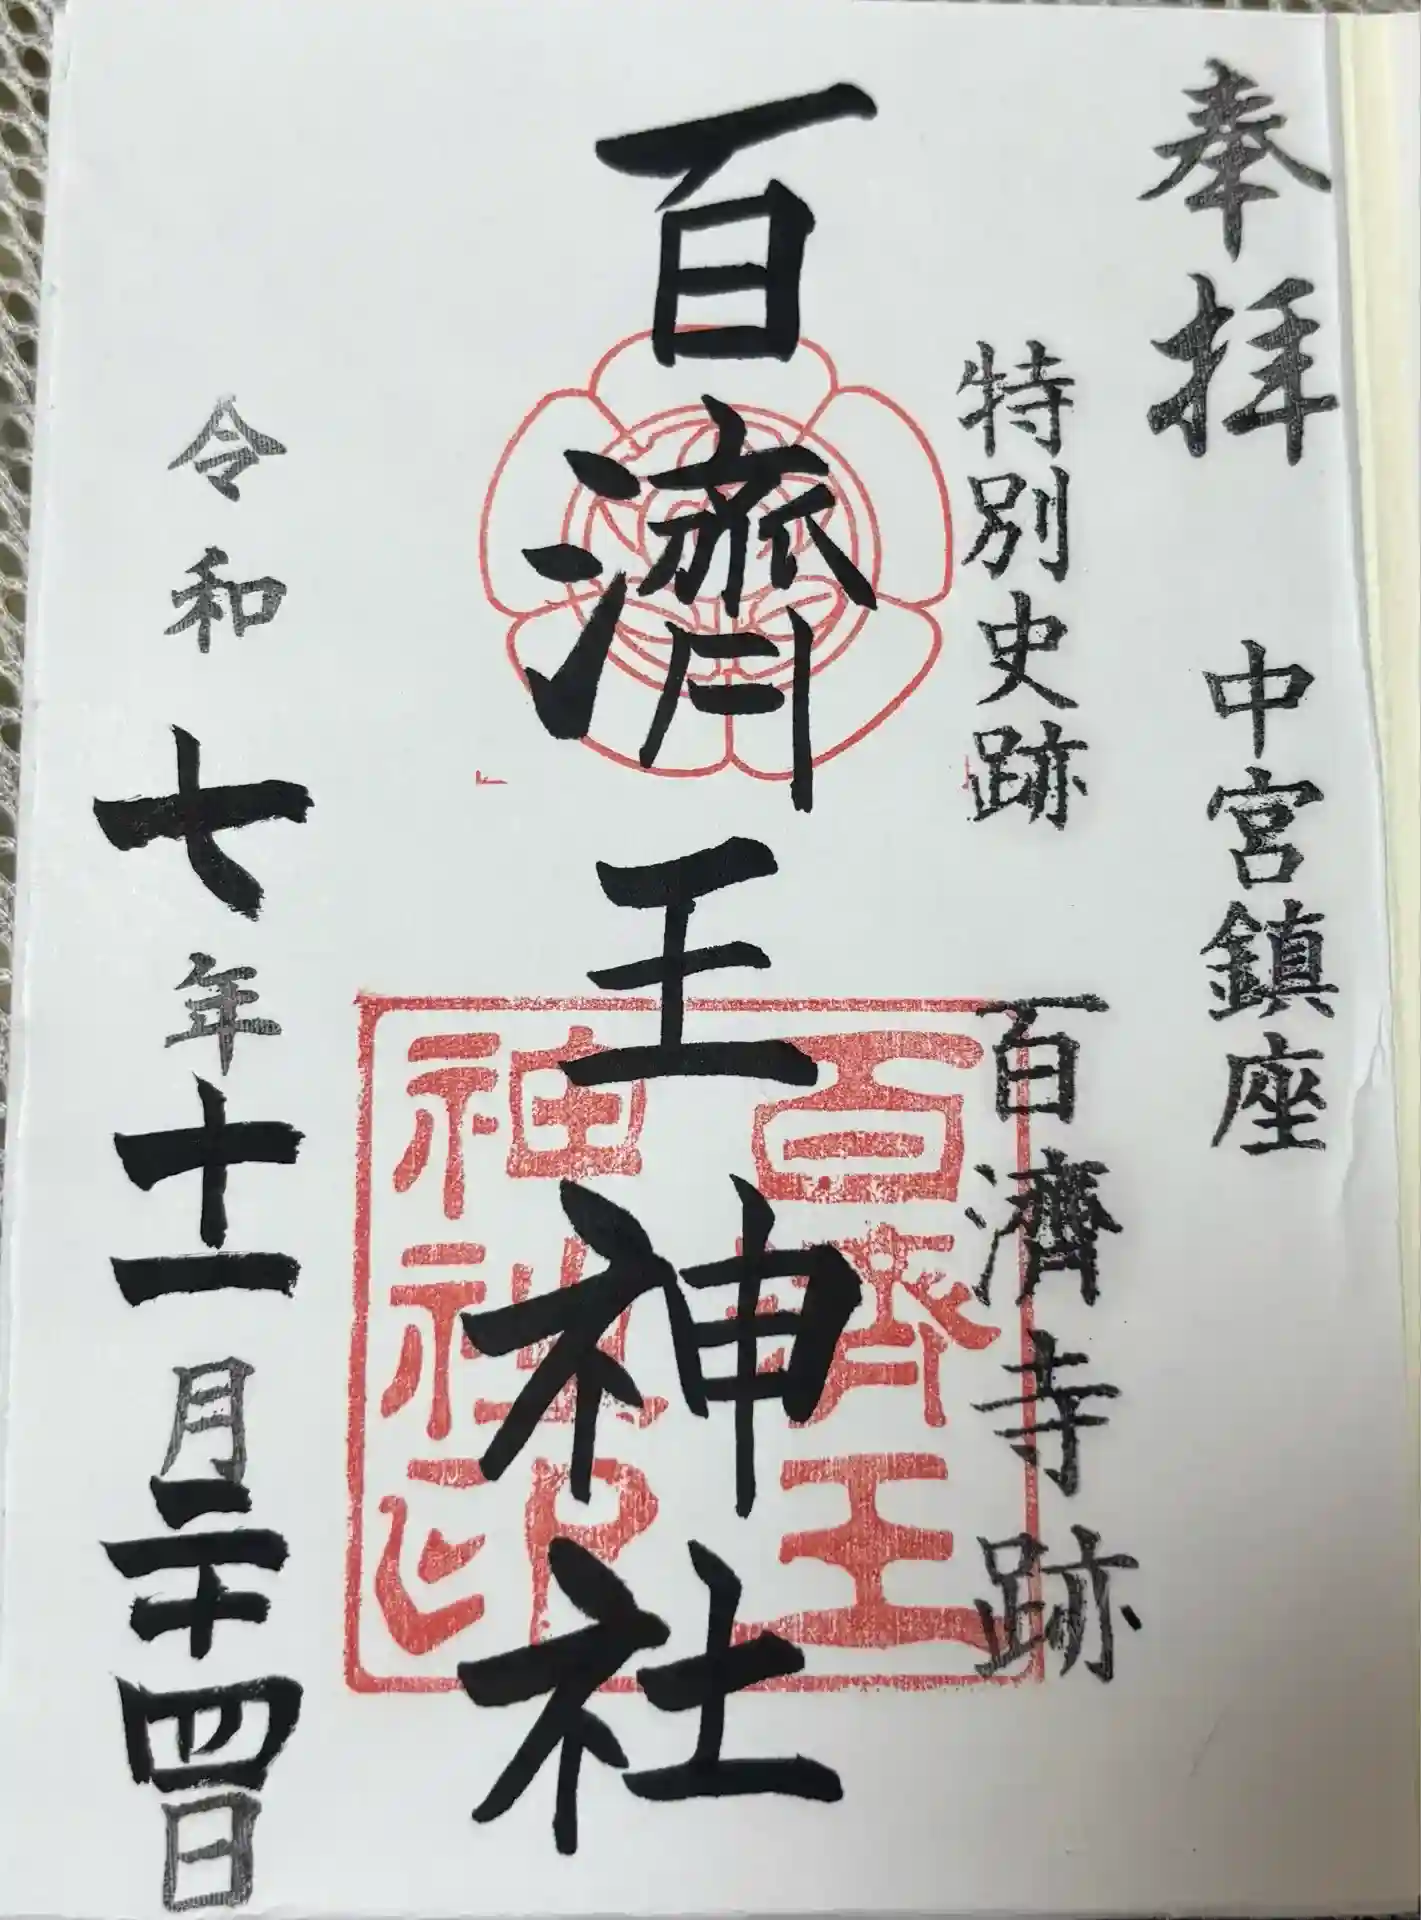 奉拝
中宮鎮座
特別史跡
百濟寺跡
百濟王神社
百濟王
神社印
令和七年十一月二十四日